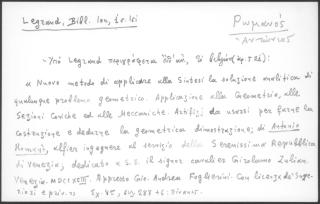 Legrand, Bibl. Ion,
Ρωμανός
Ἀντώνιος
Legrand περιγράφεται
« Nuovo metodo di applicare alla Sintesi la soluzione analitica di
qualunque problema geometrico. Applicazione alla Geometria, alle
Sezioni Coniche ed alle Meccaniche. Artifizj da usarsi per farne la
Costruzione e dedurre la geometrica dimostrazione; di Antonio
Romanò, alfier ingegnere al servigio della Serenissima Repubblica
di Venezia, dedicato a S.E. il signor cavalier Girolamo Zulian.
Venezia. Appresso Gio. Andrea Foglierini. Con licenza de'